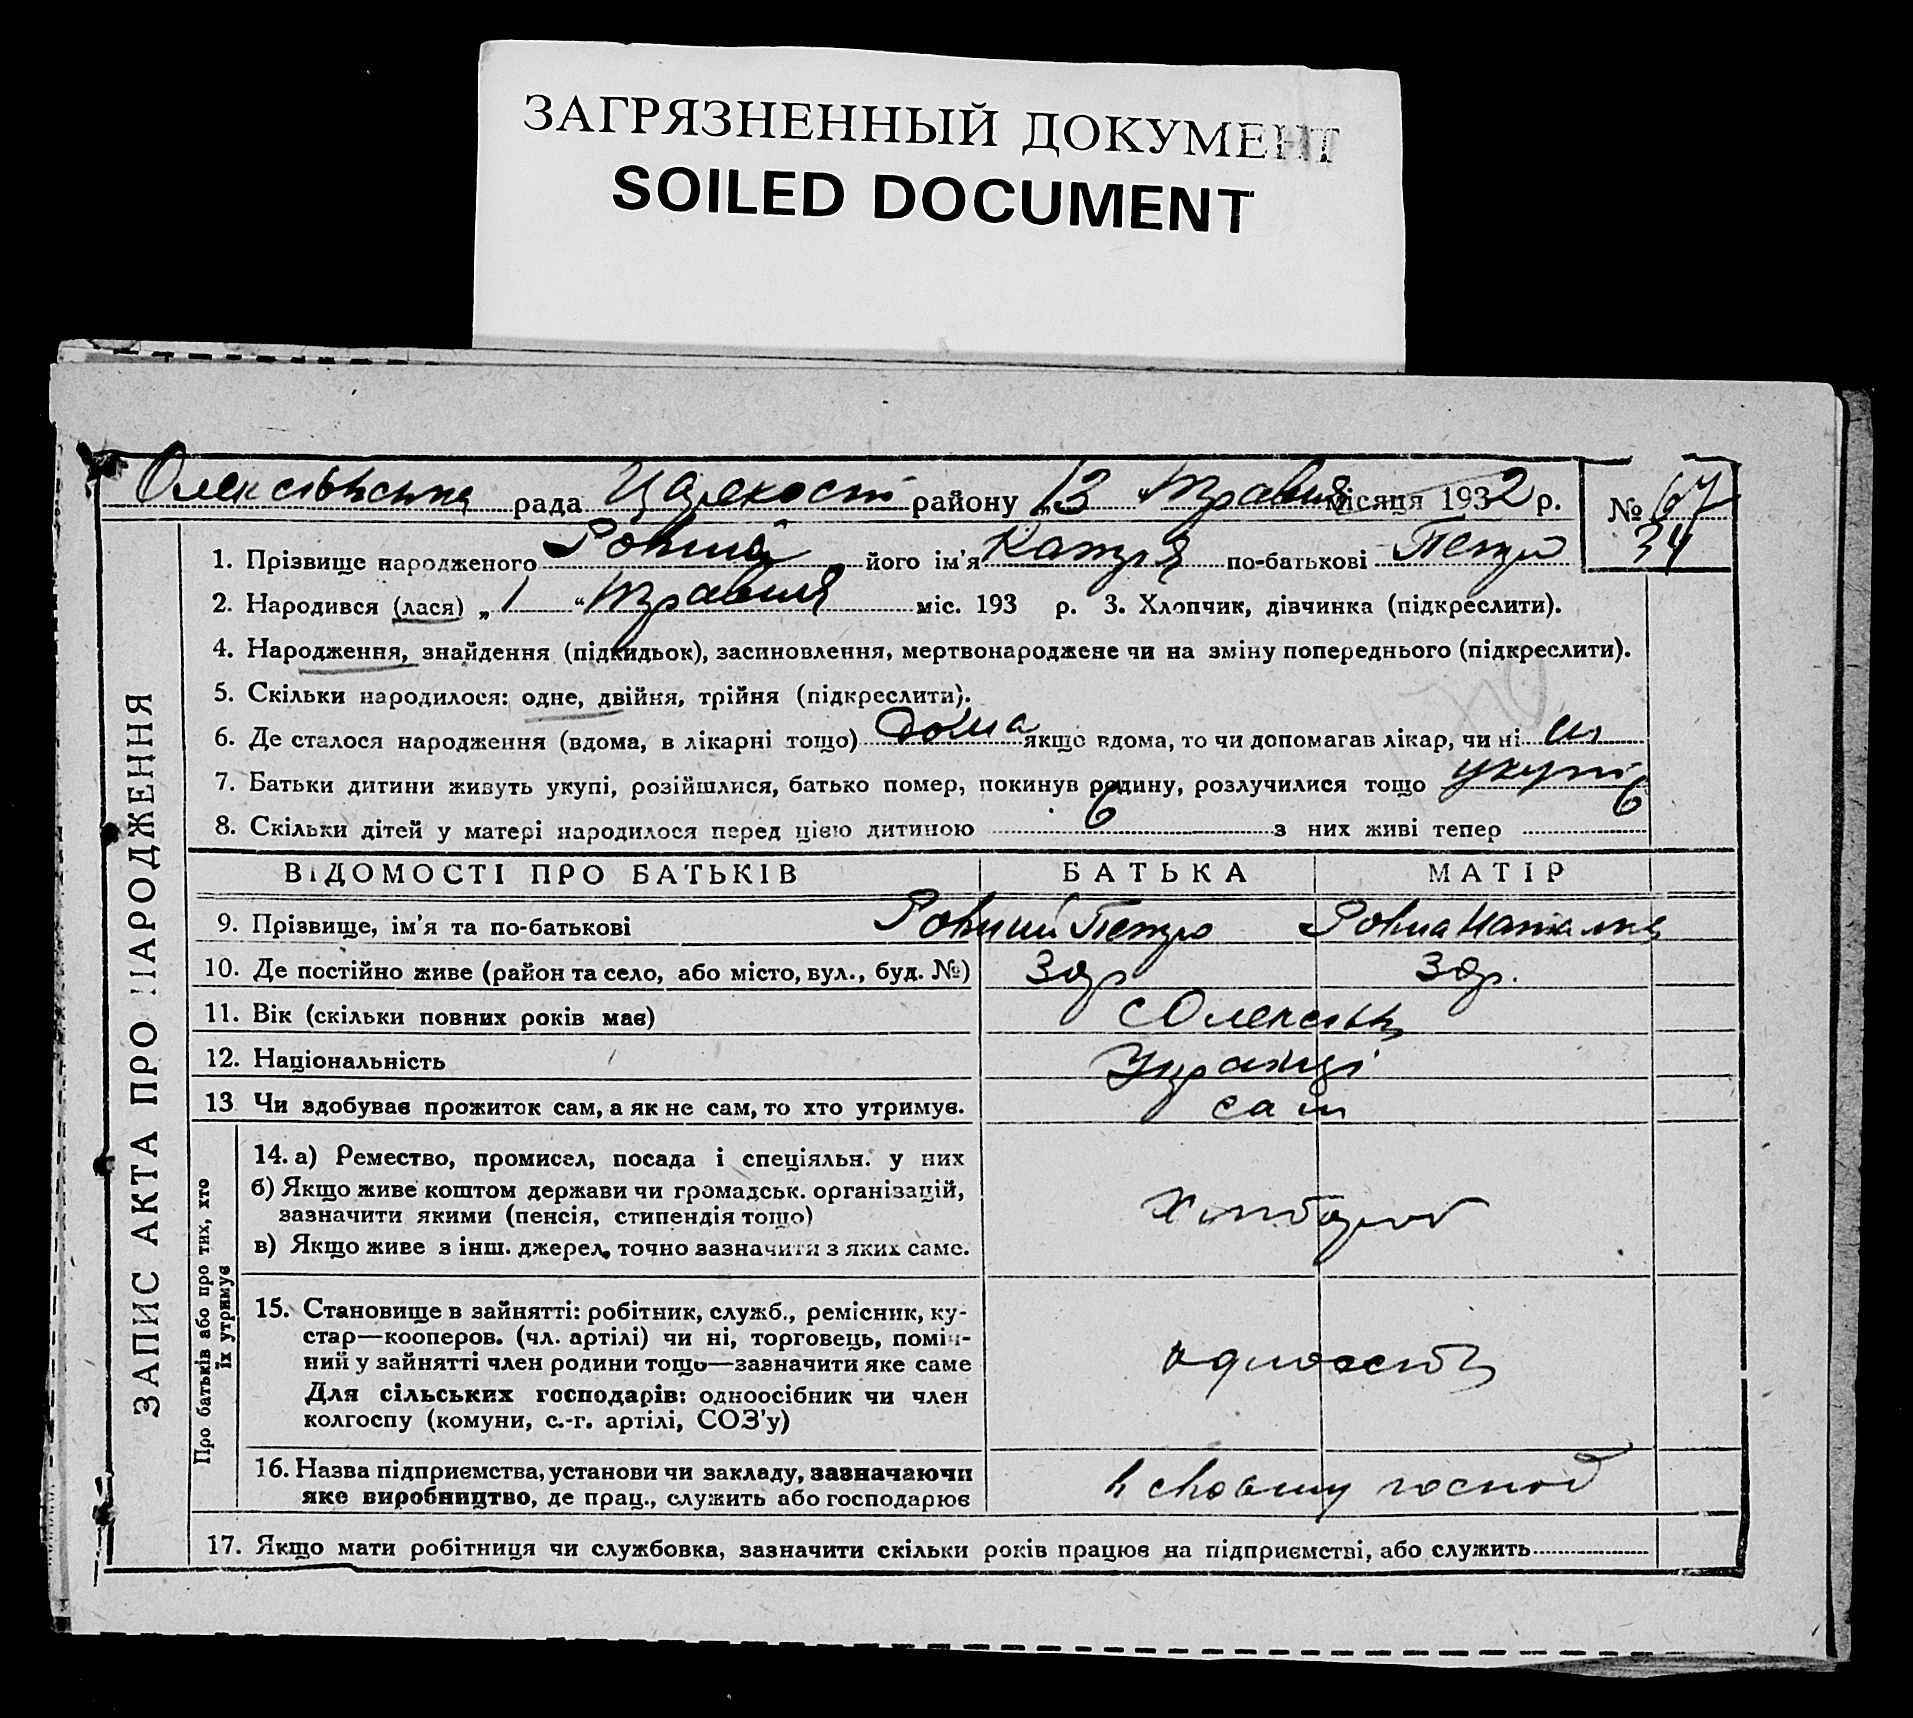 ЗАГРЯЗНЕННЫЙ ДОКУМЕНТ
SOILED DOCUMENT
рада району 13 „ травня місяця 1932 р. № 67
34
1. Прізвище народженого Ровна його ім'я Катря по-батькові Петро
2. Народився (лася) „ 1 “ травня міс. 193 р. 3. Хлопчик, дівчинка (підкреслити).
4. Народження, знайдення (підкидьок), засиновлення, мертвонароджене чи на зміну попереднього (підкреслити).
5. Скільки народилося: одне, двійня, трійня (підкреслити).
6. Де сталося народження (вдома, в лікарні тощо) дома якщо вдома, то чи допомагав лікар, чи ні
7. Батьки дитини живуть укупі, розійшлися, батько помер, покинув родину, розлучилися тощо укупі
8. Скільки дітей у матері народилося перед цією дитиною 6 з них живі тепер 6
ВІДОМОСТІ ПРО БАТЬКІВ БАТЬКА МАТІР
9. Прізвище, ім'я та по-батькові Ровний Петро Ровна Наталка
10. Де постійно живе (район та село, або місто, вул., буд. №)
11. Вік (скільки повних років має)
12. Національність Українці
13 Чи здобував прожиток сам, а як не сам, то хто утримує. сам
14. а) Ремество, промисел, посада і спеціяльн. у них
б) Якщо живе коштом держави чи громадськ. організацій,
зазначити якими (пенсія, стипендія тощо)
в) Якщо живе з інш. джерел, точно зазначити з яких саме.
15. Становище в зайнятті: робітник, служб., ремісник, ку-
стар—кооперов. (чл. артілі) чи ні, торговець, поміч-
ний у зайнятті член родини тощо—зазначити яке саме
Для сільських господарів: одноосібник чи член
колгоспу (комуни, с.-г. артілі, СОЗ'у)
16. Назва підприємства, установи чи закладу, зазначаючи
яке виробництво, де прац., служить або господарює
в своєму господ
17. Якщо мати робітниця чи службовка, зазначити скільки років працює на підприємстві, або служить
ЗАПИС АКТА ПРО НАРОДЖЕННЯ
Про батьків або про тих, хто
їх утримує